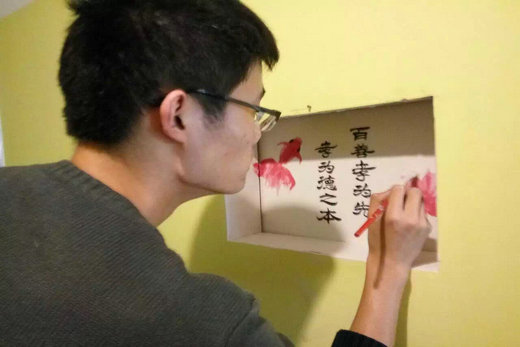 百善孝为先
孝为德之本